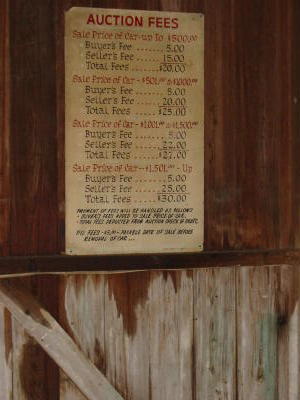 AUCTION FEES
Sale Price of Car - up To $500.00
Buyer's Fee ....... 5.00
Seller's Fee ...... 15.00
Total Fees ....... $20.00
Sale Price of Car - $501.00 to $1000.00
Buyer's Fee ...... 5.00
Seller's Fee ..... 20.00
Total Fees ...... $25.00
Sale Price of Car - $1,001.00 to $1,500.00
Buyer's Fee ...... 5.00
Seller's Fee ..... 22.00
Total Fees ...... $27.00
Sale Price of Car - $1,501.00 - Up
Buyer's Fee ...... 5.00
Seller's Fee ..... 25.00
Total Fees ...... $30.00
PAYMENT OF FEES WILL BE HANDLED AS FOLLOWS
- BUYER'S FEES ADDED TO SALE PRICE OF CAR.
- TOTAL FEES DEDUCTED FROM AUCTION CHECK
PAYABLE DATE OF SALE BEFORE
REMOVAL OF CAR ...